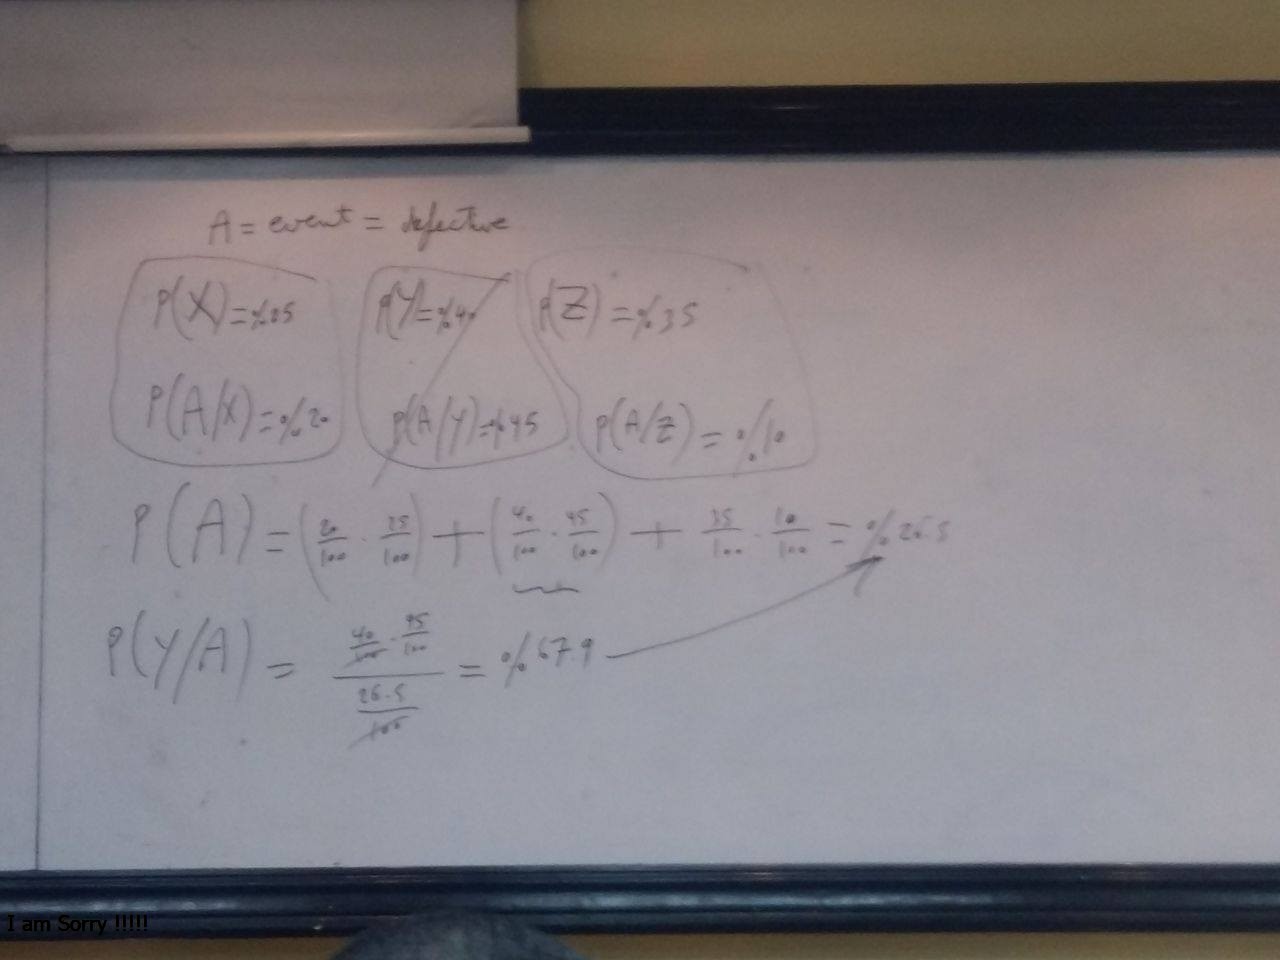 A = event = defective
P(X) = %25 P(Y) = %40 P(Z) = %35
P(A/X) = %20 P(A/Y) = %45 P(A/Z) = %10
P(A) = (20/100 · 25/100) + (40/100 · 45/100) + 35/100 · 10/100 = %26.5
P(Y/A) = 40/100 · 45/100 / 26.5/100 = %67.9
I am Sorry !!!!!